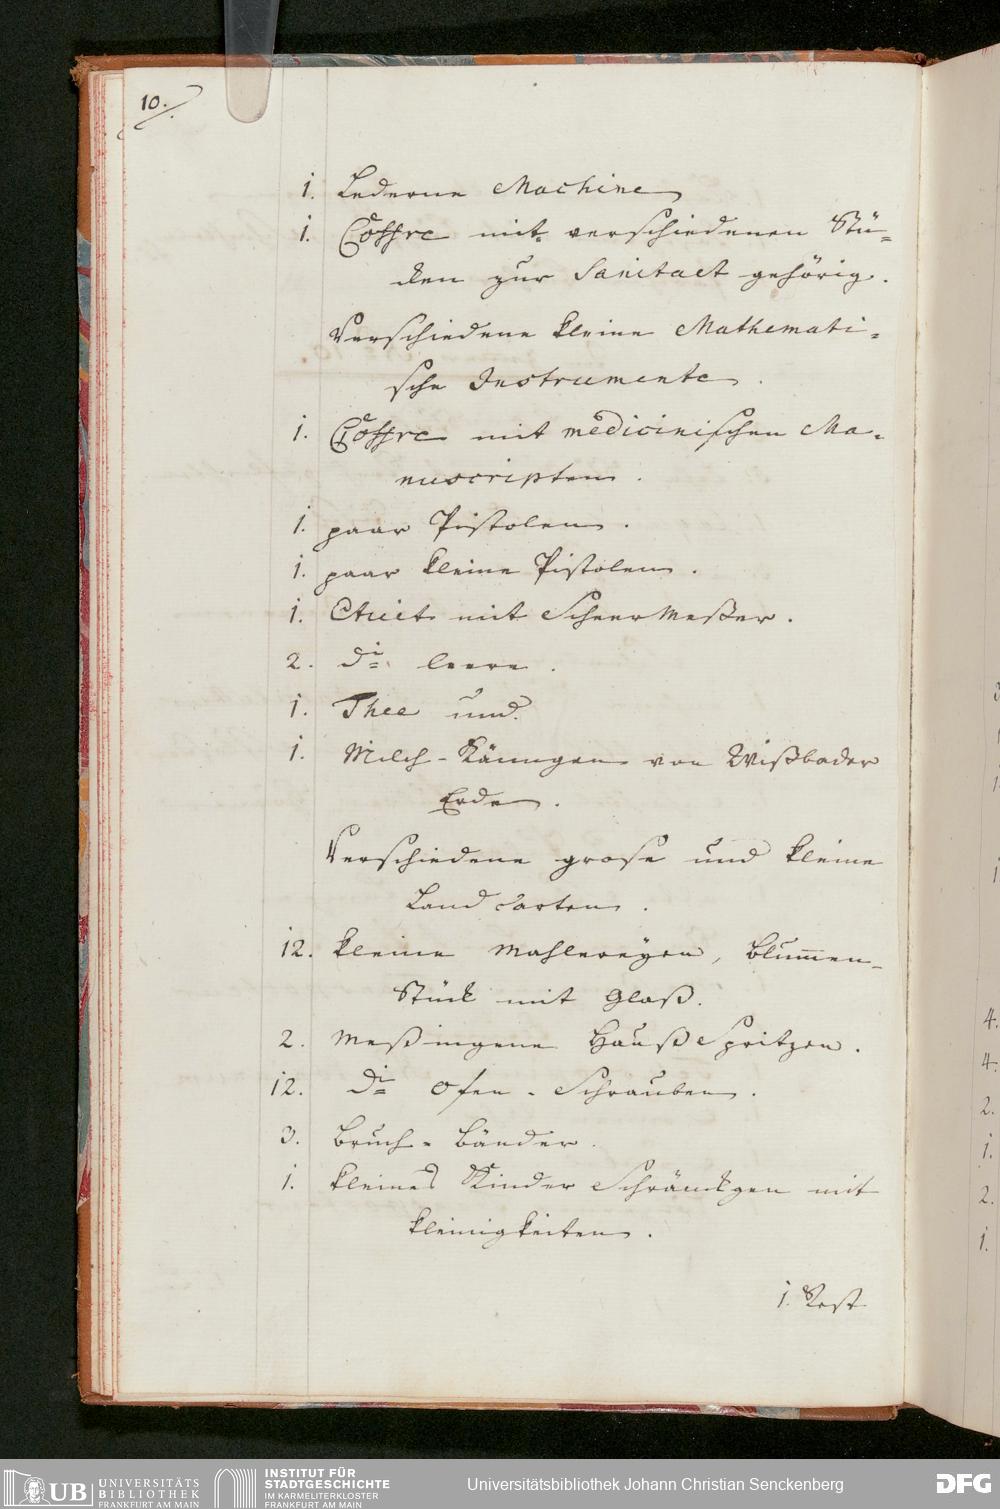 10.
1. Lederne Machine
1. Coffre mit verschiedenen Stü=
cken zur Sanitaet gehörig.
Verschiedene kleine Mathemati=
sche Instrumente.
1. Coffre mit medicinischen Ma=
nuscripten.
1. paar Pistolen.
1. paar kleine Pistolen.
1. Etuit mit Scheer Meßer.
2. do. leere.
1. Thee und
1. Milch-Känngen von Wißbader
Erde.
Verschiedene grose und kleine
Land Carten.
12. kleine Mahlereyen, Blumen-
Stück mit Glaß.
2. Meßingene Hauß Spritzen.
12. do. Ofen-Schrauben.
3. Bruch-Bänder.
1. kleines Kinder Schränckgen mit
Kleinigkeiten.
1. Rest
UB UNIVERSITÄTS
BIBLIOTHEK
FRANKFURT AM MAIN
INSTITUT FÜR
STADTGESCHICHTE
IM KARMELITERKLOSTER
FRANKFURT AM MAIN
Universitätsbibliothek Johann Christian Senckenberg
DFG